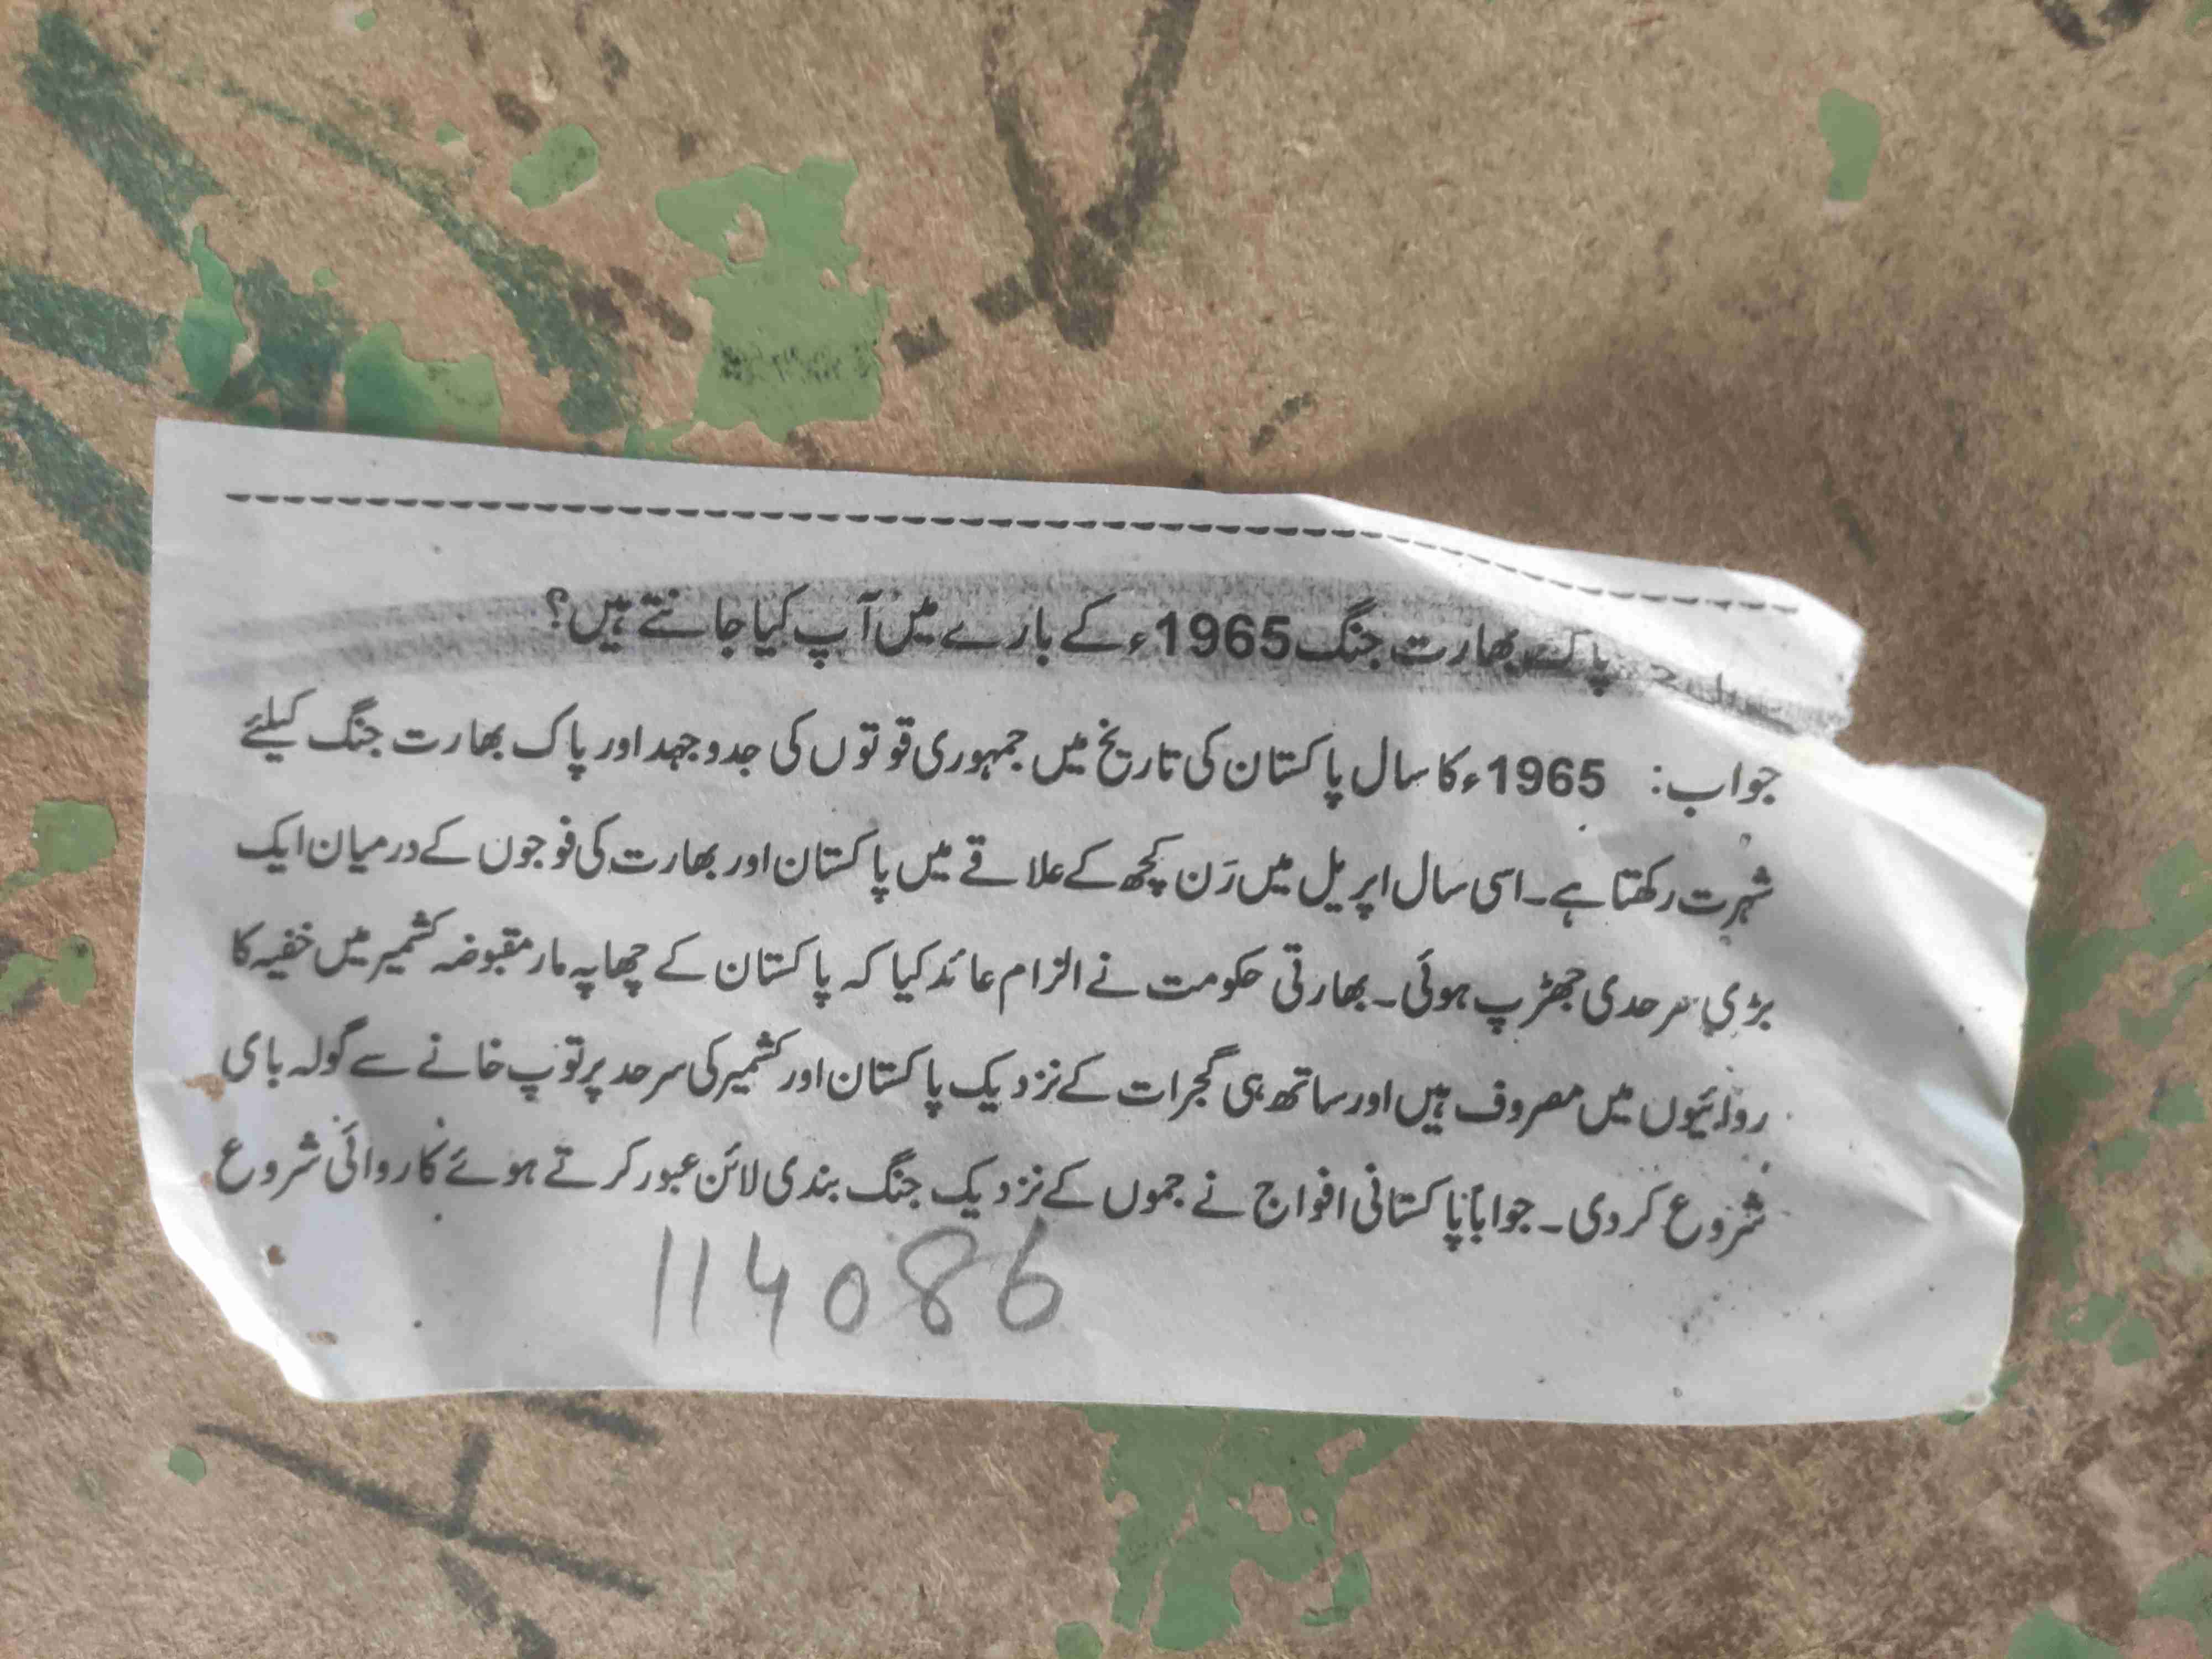 پاک بھارت جنگ 1965ء کے بارے میں آپ کیا جانتے ہیں؟
جواب: 1965ء کا سال پاکستان کی تاریخ میں جمہوری قوتوں کی جدوجہد اور پاک بھارت جنگ کیلئے
شہرت رکھتا ہے۔ اسی سال اپریل میں رَن کچھ کے علاقے میں پاکستان اور بھارت کی فوجوں کے درمیان ایک
بڑی سرحدی جھڑپ ہوئی۔ بھارتی حکومت نے الزام عائد کیا کہ پاکستان کے چھاپہ مار مقبوضہ کشمیر میں خفیہ کا
روائیوں میں مصروف ہیں اور ساتھ ہی گجرات کے نزدیک پاکستان اور کشمیر کی سرحد پر توپ خانے سے گولہ بای
شروع کر دی۔ جواباً پاکستانی افواج نے جموں کے نزدیک جنگ بندی لائن عبور کرتے ہوئے کاروائی شروع
114086